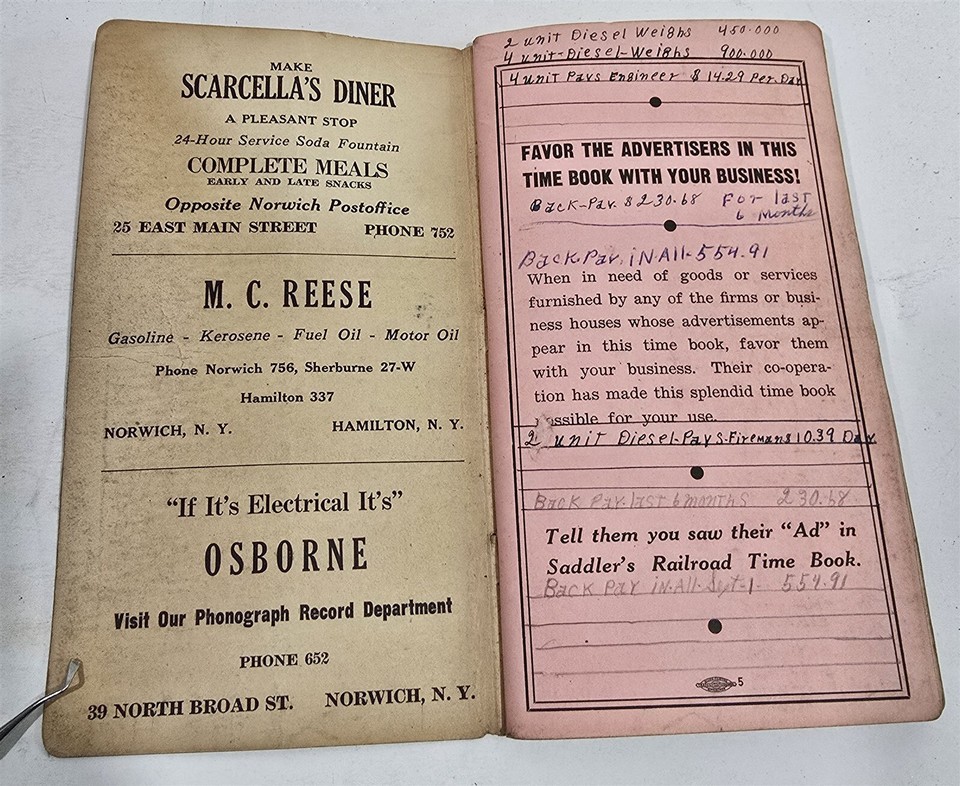 MAKE
SCARCELLA'S DINER
A PLEASANT STOP
24-Hour Service Soda Fountain
COMPLETE MEALS
EARLY AND LATE SNACKS
Opposite Norwich Postoffice
25 EAST MAIN STREET PHONE 752
M. C. REESE
Gasoline - Kerosene - Fuel Oil - Motor Oil
Phone Norwich 756, Sherburne 27-W
Hamilton 337
NORWICH, N. Y. HAMILTON, N. Y.
"If It's Electrical It's"
OSBORNE
Visit Our Phonograph Record Department
PHONE 652
39 NORTH BROAD ST. NORWICH, N. Y.
2 unit Diesel Weighs 450.000
4 unit-Diesel-Weighs 900.000
4 unit Pays Engineer $ 14.29 Per Day
FAVOR THE ADVERTISERS IN THIS
TIME BOOK WITH YOUR BUSINESS!
Back-Pay. $230.68 For last
6 Months
Back.Pay.iN.All-554.91
When in need of goods or services
furnished by any of the firms or busi-
ness houses whose advertisements ap-
pear in this time book, favor them
with your business. Their co-opera-
tion has made this splendid time book
possible for your use.
2 unit Diesel-Pays-Firemans 10.39 Day
Back Pay.last 6 months 230.68.
Tell them you saw their "Ad" in
Saddler's Railroad Time Book.
Back Pay iN.All-Sept-1 554.91
5